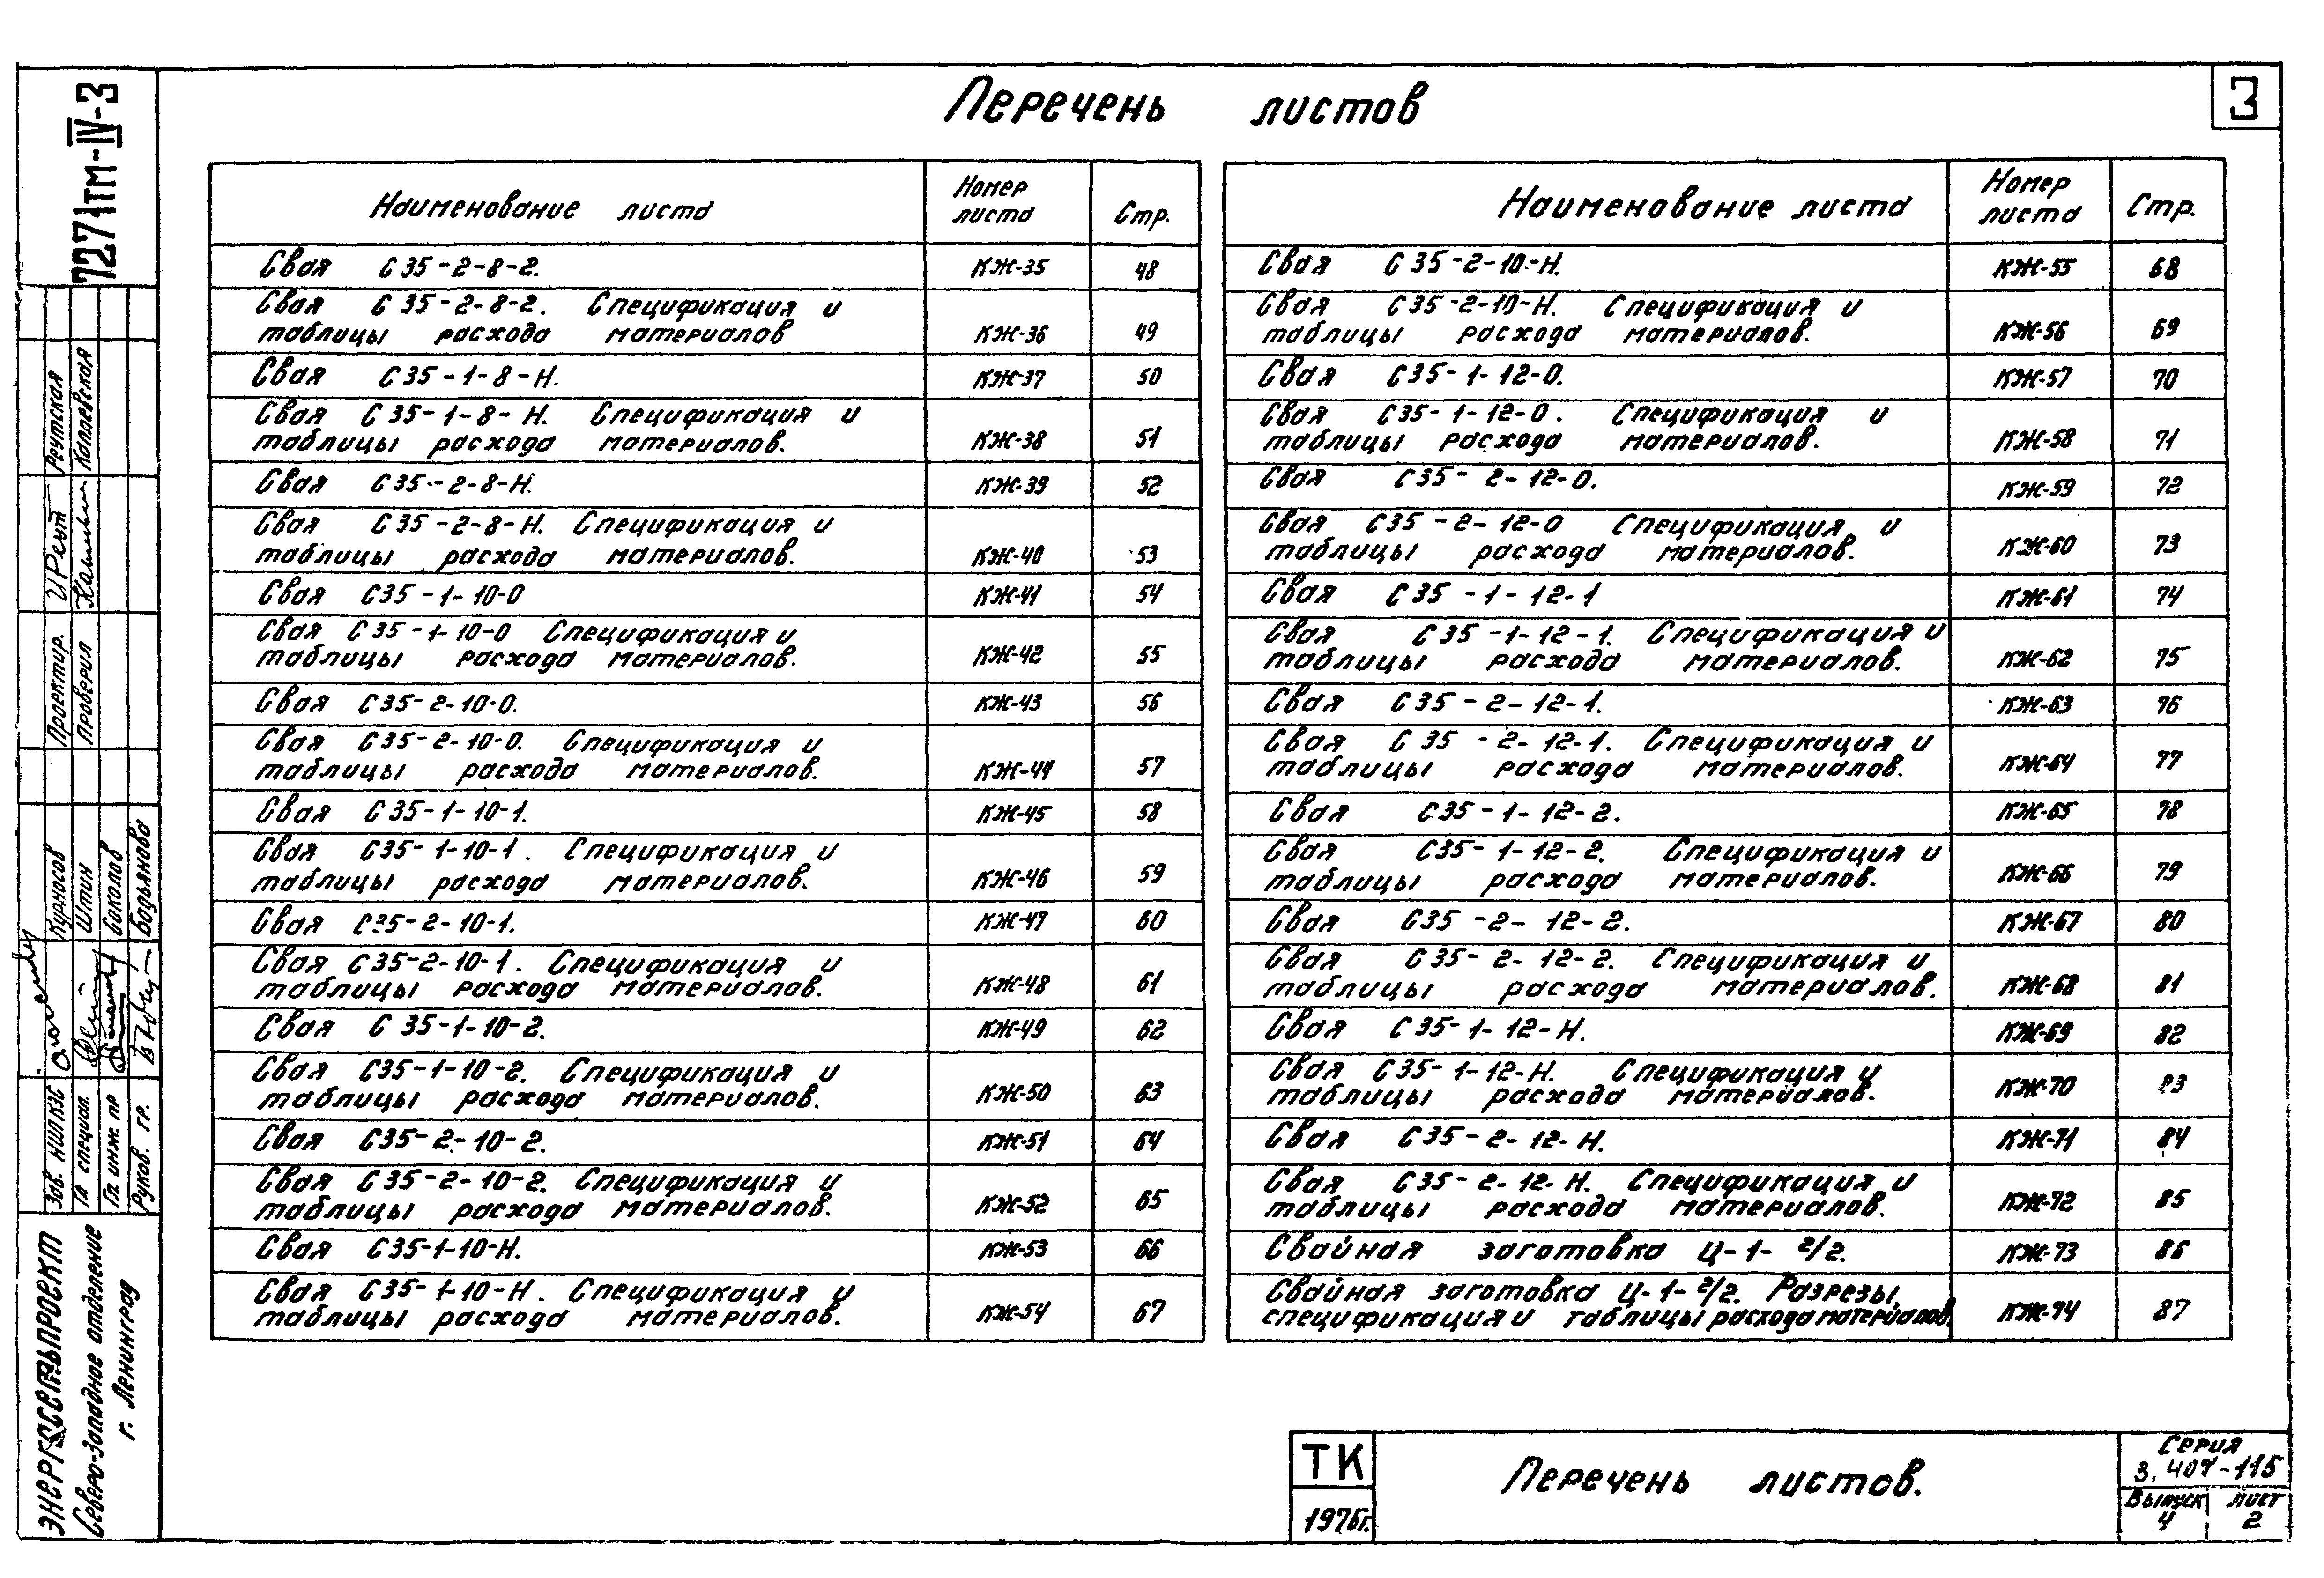 Перечень листов
3
7271тм-IV-3
Наименование листа Номер листа Стр.
Свая С35-2-8-2. КЖ-35 48
Свая С35-2-8-2. Спецификация и
таблицы расхода материалов КЖ-36 49
Свая С35-1-8-Н. КЖ-37 50
Свая С35-1-8-Н. Спецификация и
таблицы расхода материалов. КЖ-38 51
Свая С35-2-8-Н. КЖ-39 52
Свая С35-2-8-Н. Спецификация и
таблицы расхода материалов. КЖ-40 53
Свая С35-1-10-0 КЖ-41 54
Свая С35-1-10-0 Спецификация и
таблицы расхода материалов. КЖ-42 55
Свая С35-2-10-0. КЖ-43 56
Свая С35-2-10-0. Спецификация и
таблицы расхода материалов. КЖ-44 57
Свая С35-1-10-1. КЖ-45 58
Свая С35-1-10-1. Спецификация и
таблицы расхода материалов. КЖ-46 59
Свая С35-2-10-1. КЖ-47 60
Свая С35-2-10-1. Спецификация и
таблицы расхода материалов. КЖ-48 61
Свая С35-1-10-2. КЖ-49 62
Свая С35-1-10-2. Спецификация и
таблицы расхода материалов. КЖ-50 63
Свая С35-2-10-2. КЖ-51 64
Свая С35-2-10-2. Спецификация и
таблицы расхода материалов. КЖ-52 65
Свая С35-1-10-Н. КЖ-53 66
Свая С35-1-10-Н. Спецификация и
таблицы расхода материалов. КЖ-54 67
Наименование листа Номер листа Стр.
Свая С35-2-10-Н. КЖ-55 68
Свая С35-2-10-Н. Спецификация и
таблицы расхода материалов. КЖ-56 69
Свая С35-1-12-0. КЖ-57 70
Свая С35-1-12-0. Спецификация и
таблицы расхода материалов. КЖ-58 71
Свая С35-2-12-0. КЖ-59 72
Свая С35-2-12-0 Спецификация и
таблицы расхода материалов. КЖ-60 73
Свая С35-1-12-1 КЖ-61 74
Свая С35-1-12-1. Спецификация и
таблицы расхода материалов. КЖ-62 75
Свая С35-2-12-1. КЖ-63 76
Свая С35-2-12-1. Спецификация и
таблицы расхода материалов. КЖ-64 77
Свая С35-1-12-2. КЖ-65 78
Свая С35-1-12-2. Спецификация и
таблицы расхода материалов. КЖ-66 79
Свая С35-2-12-2. КЖ-67 80
Свая С35-2-12-2. Спецификация и
таблицы расхода материалов. КЖ-68 81
Свая С35-1-12-Н. КЖ-69 82
Свая С35-1-12-Н. Спецификация и
таблицы расхода материалов. КЖ-70 83
Свая С35-2-12-Н. КЖ-71 84
Свая С35-2-12-Н. Спецификация и
таблицы расхода материалов. КЖ-72 85
Свайная заготовка Ц-1-2/2. КЖ-73 86
Свайная заготовка Ц-1-2/2. Разрезы,
спецификация и таблицы расхода материалов. КЖ-74 87
Энергосетьпроект
Северо-Западное отделение
г. Ленинград
Зав. НИЛКЭС Курносов
Гл специал. Штин
Гл. инж. пр Соколов
Руков. гр. Бодьянова
Проектир. Реутская
Проверил
ТК
1976г.
Перечень листов.
Серия
3.407-115
Выпуск 4
лист 2